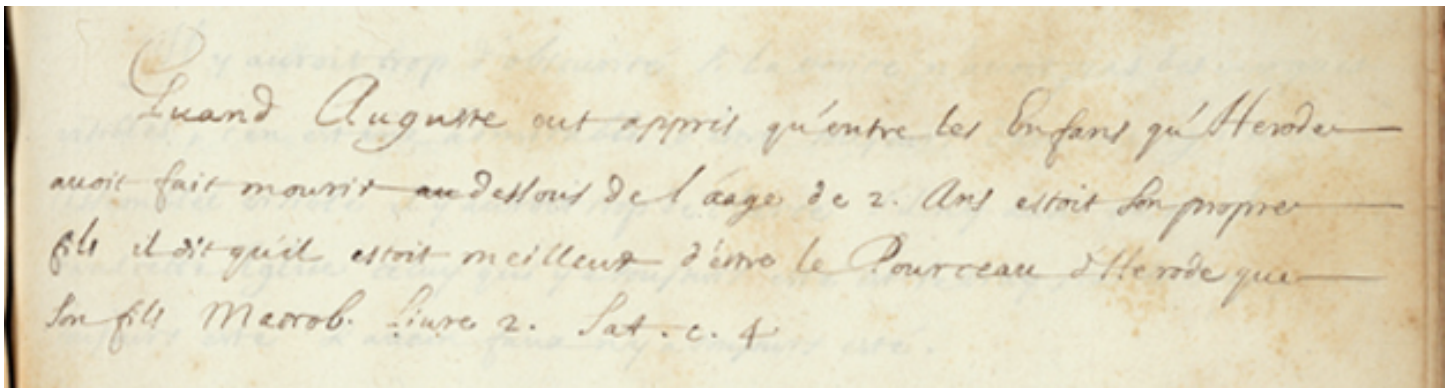 Quand Auguste eut appris qu'entre les Enfans qu'Herode
avoit fait mourir au dessous de l'aage de 2. Ans estoit son propre
fils il dit qu'il estoit meilleur d'être le Pourceau d'Herode que
son fils Macrob. Livre 2. Sat. c. 4